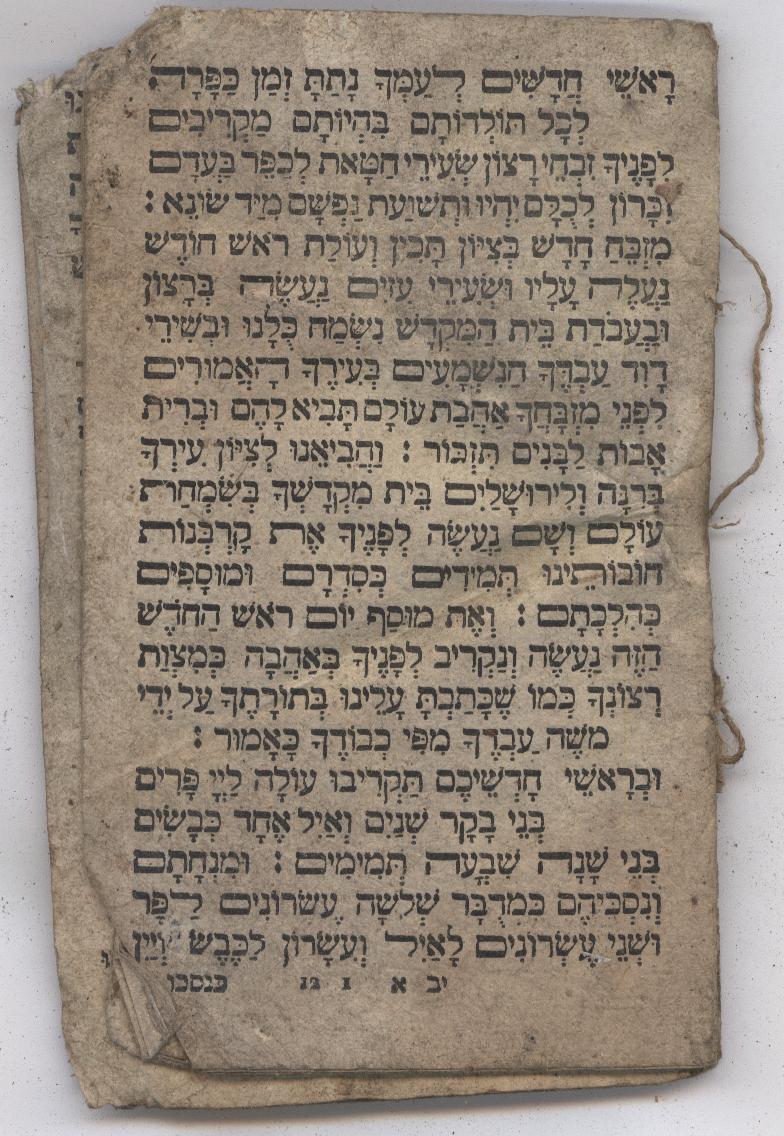 רָאשֵׁי חֳדָשִׁים לְעַמְּךָ נָתַתָּ זְמַן כַּפָּרָה
לְכָל תּוֹלְדוֹתָם בִּהְיוֹתָם מַקְרִיבִים
לְפָנֶיךָ זִבְחֵי רָצוֹן שְׂעִירֵי חַטָּאת לְכַפֵּר בַּעֲדָם
זִכָּרוֹן לְכֻלָּם יִהְיוּ וּתְשׁוּעַת נַפְשָׁם מִיַּד שׂוֹנֵא :
מִזְבֵּחַ חָדָשׁ בְּצִיּוֹן תָּכִין וְעוֹלַת רֹאשׁ חוֹדֶשׁ
נַעֲלֶה עָלָיו וּשְׂעִירֵי עִזִּים נַעֲשֶׂה בְּרָצוֹן
וּבַעֲבֹדַת בֵּית הַמִּקְדָּשׁ נִשְׂמַח כֻּלָּנוּ וּבְשִׁירֵי
דָוִד עַבְדְּךָ הַנִּשְׁמָעִים בְּעִירֶךָ הָאֲמוּרִים
לִפְנֵי מִזְבָּחֲךָ אַהֲבַת עוֹלָם תָּבִיא לָהֶם וּבְרִית
אָבוֹת לַבָּנִים תִּזְכּוֹר : וַהֲבִיאֵנוּ לְצִיּוֹן עִירְךָ
בְּרִנָּה וְלִירוּשָׁלַיִם בֵּית מִקְדָּשְׁךָ בְּשִׂמְחַת
עוֹלָם וְשָׁם נַעֲשֶׂה לְפָנֶיךָ אֶת קָרְבְּנוֹת
חוֹבוֹתֵינוּ תְּמִידִים כְּסִדְרָם וּמוּסָפִים
כְּהִלְכָתָם : וְאֶת מוּסַף יוֹם רֹאשׁ הַחֹדֶשׁ
הַזֶּה נַעֲשֶׂה וְנַקְרִיב לְפָנֶיךָ בְּאַהֲבָה כְּמִצְוַת
רְצוֹנְךָ כְּמוֹ שֶׁכָּתַבְתָּ עָלֵינוּ בְּתוֹרָתֶךָ עַל יְדֵי
מֹשֶׁה עַבְדֶּךָ מִפִּי כְבוֹדֶךָ כָּאָמוּר :
וּבְרָאשֵׁי חָדְשֵׁיכֶם תַּקְרִיבוּ עוֹלָה לַיְיָ פָּרִים
בְּנֵי בָקָר שְׁנַיִם וְאַיִל אֶחָד כְּבָשִׂים
בְּנֵי שָׁנָה שִׁבְעָה תְּמִימִים : וּמִנְחָתָם
וְנִסְכֵּיהֶם כִּמְדֻבָּר שְׁלֹשָׁה עֶשְׂרוֹנִים לַפָּר
וּשְׁנֵי עֶשְׂרוֹנִים לָאַיִל וְעִשָּׂרוֹן לַכֶּבֶשׂ וְיַיִן
יב א 1 12 כנסכו